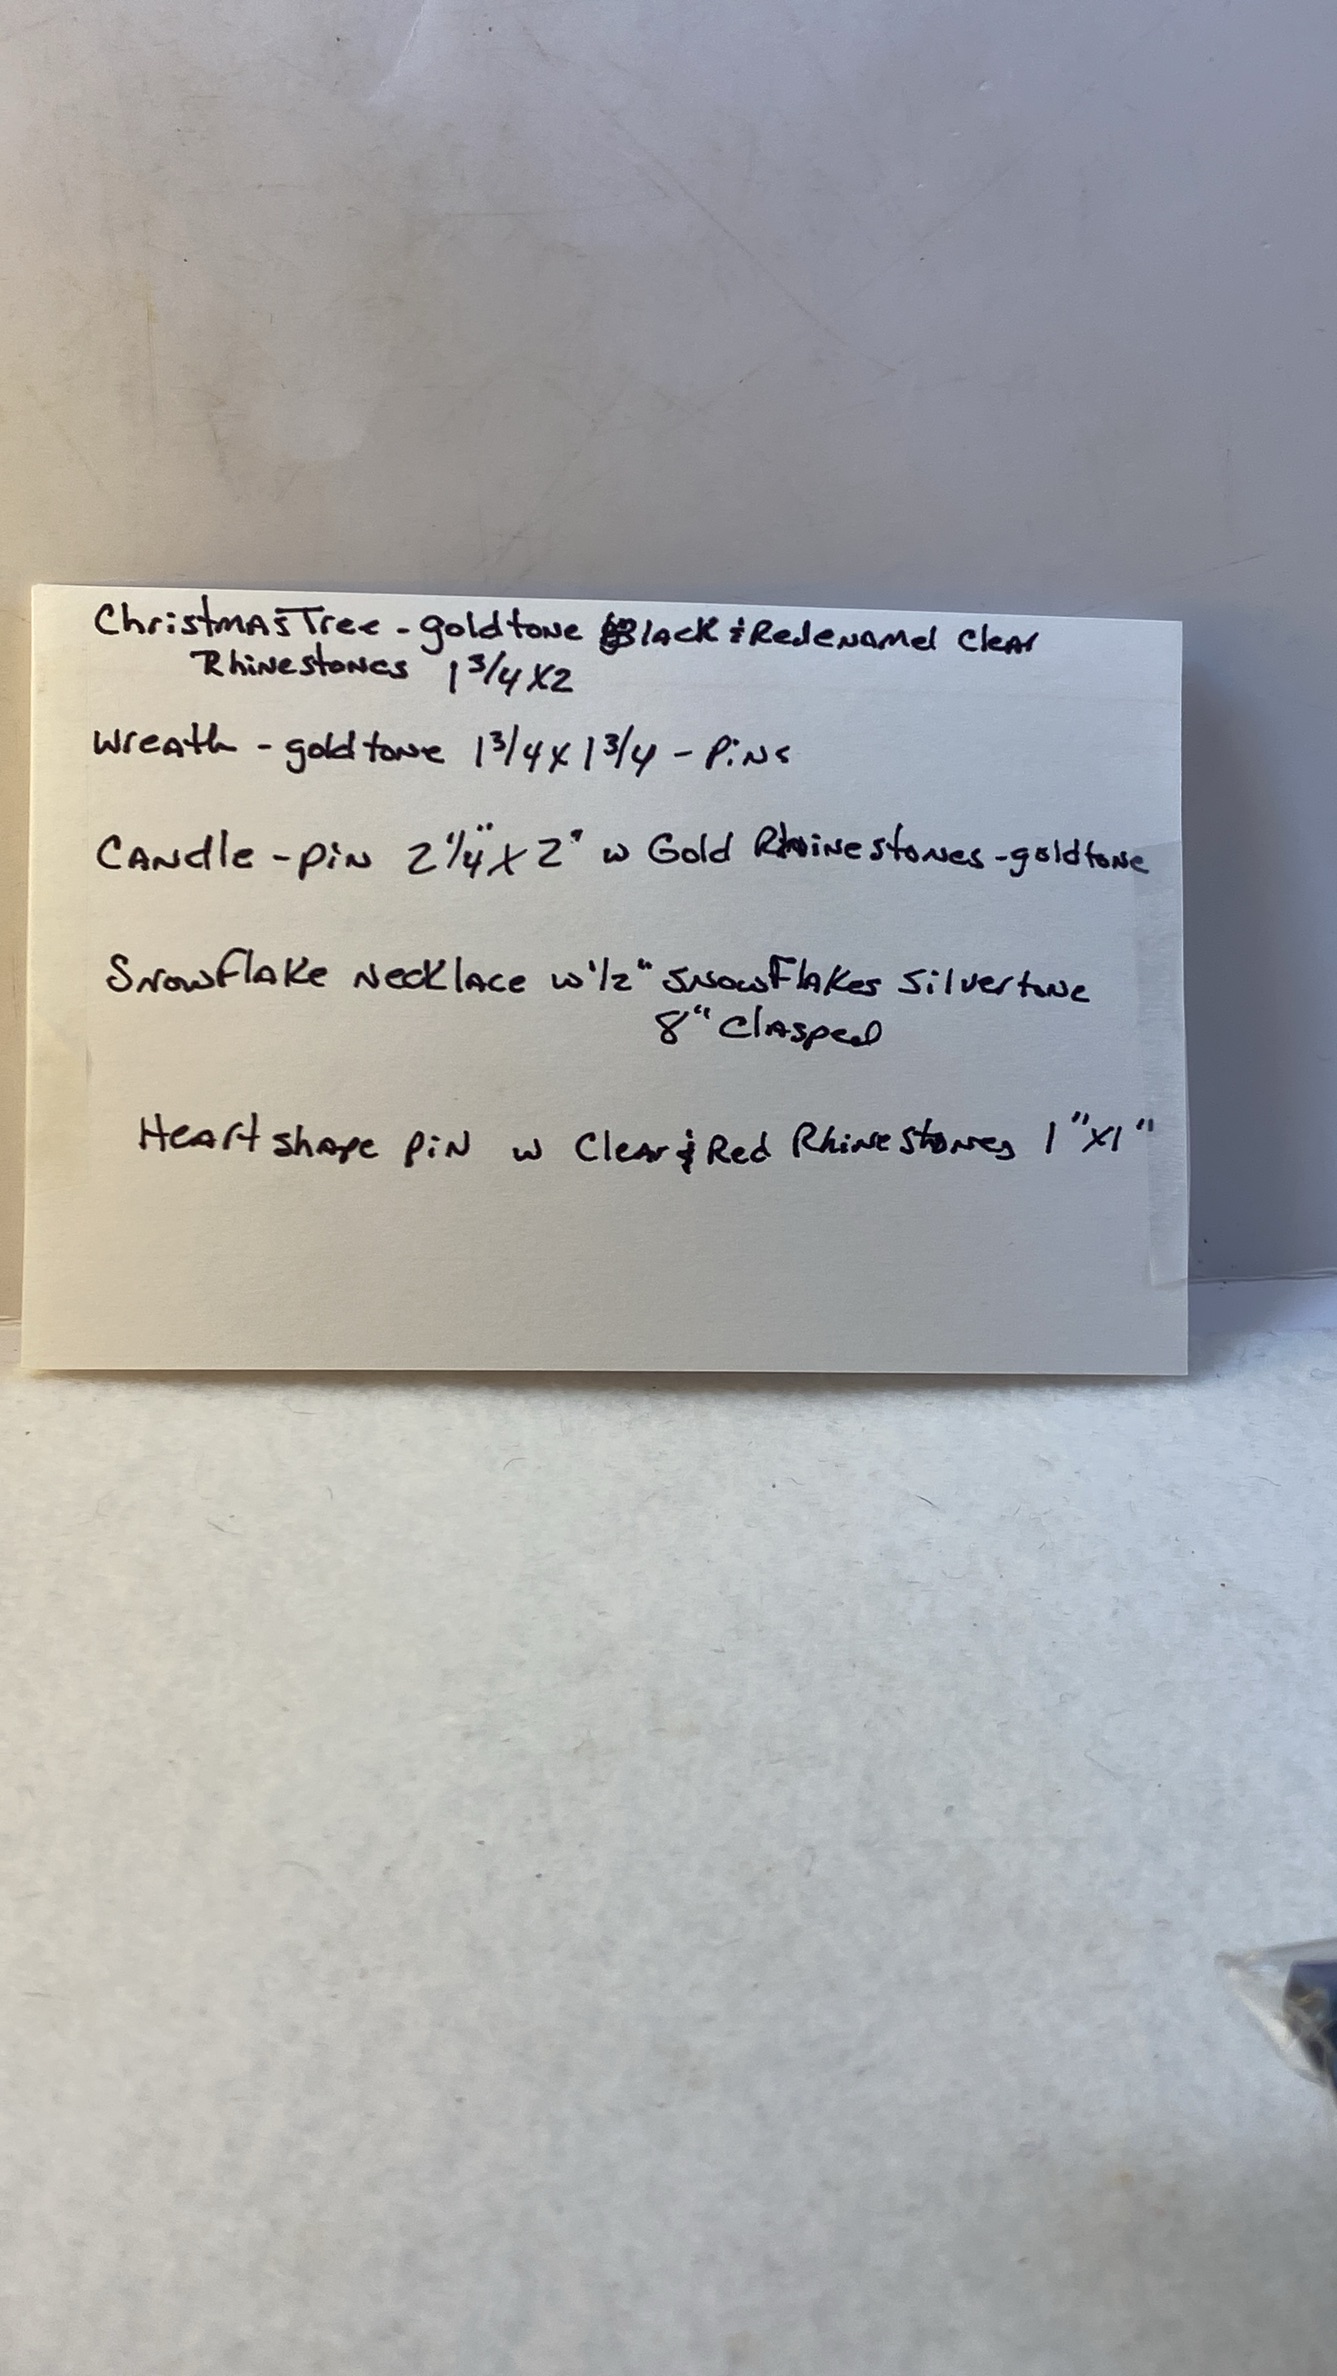 Christmas Tree - goldtone Black & Red enamel Clear
Rhinestones 1 3/4 X 2
Wreath - goldtone 1 3/4 x 1 3/4 - Pins
Candle - pin 2 1/4" X 2" w Gold Rhinestones - goldtone
Snowflake Necklace w 1/2" Snowflakes Silvertone
8" Clasped
Heart shape pin w Clear & Red Rhinestones 1" X 1"